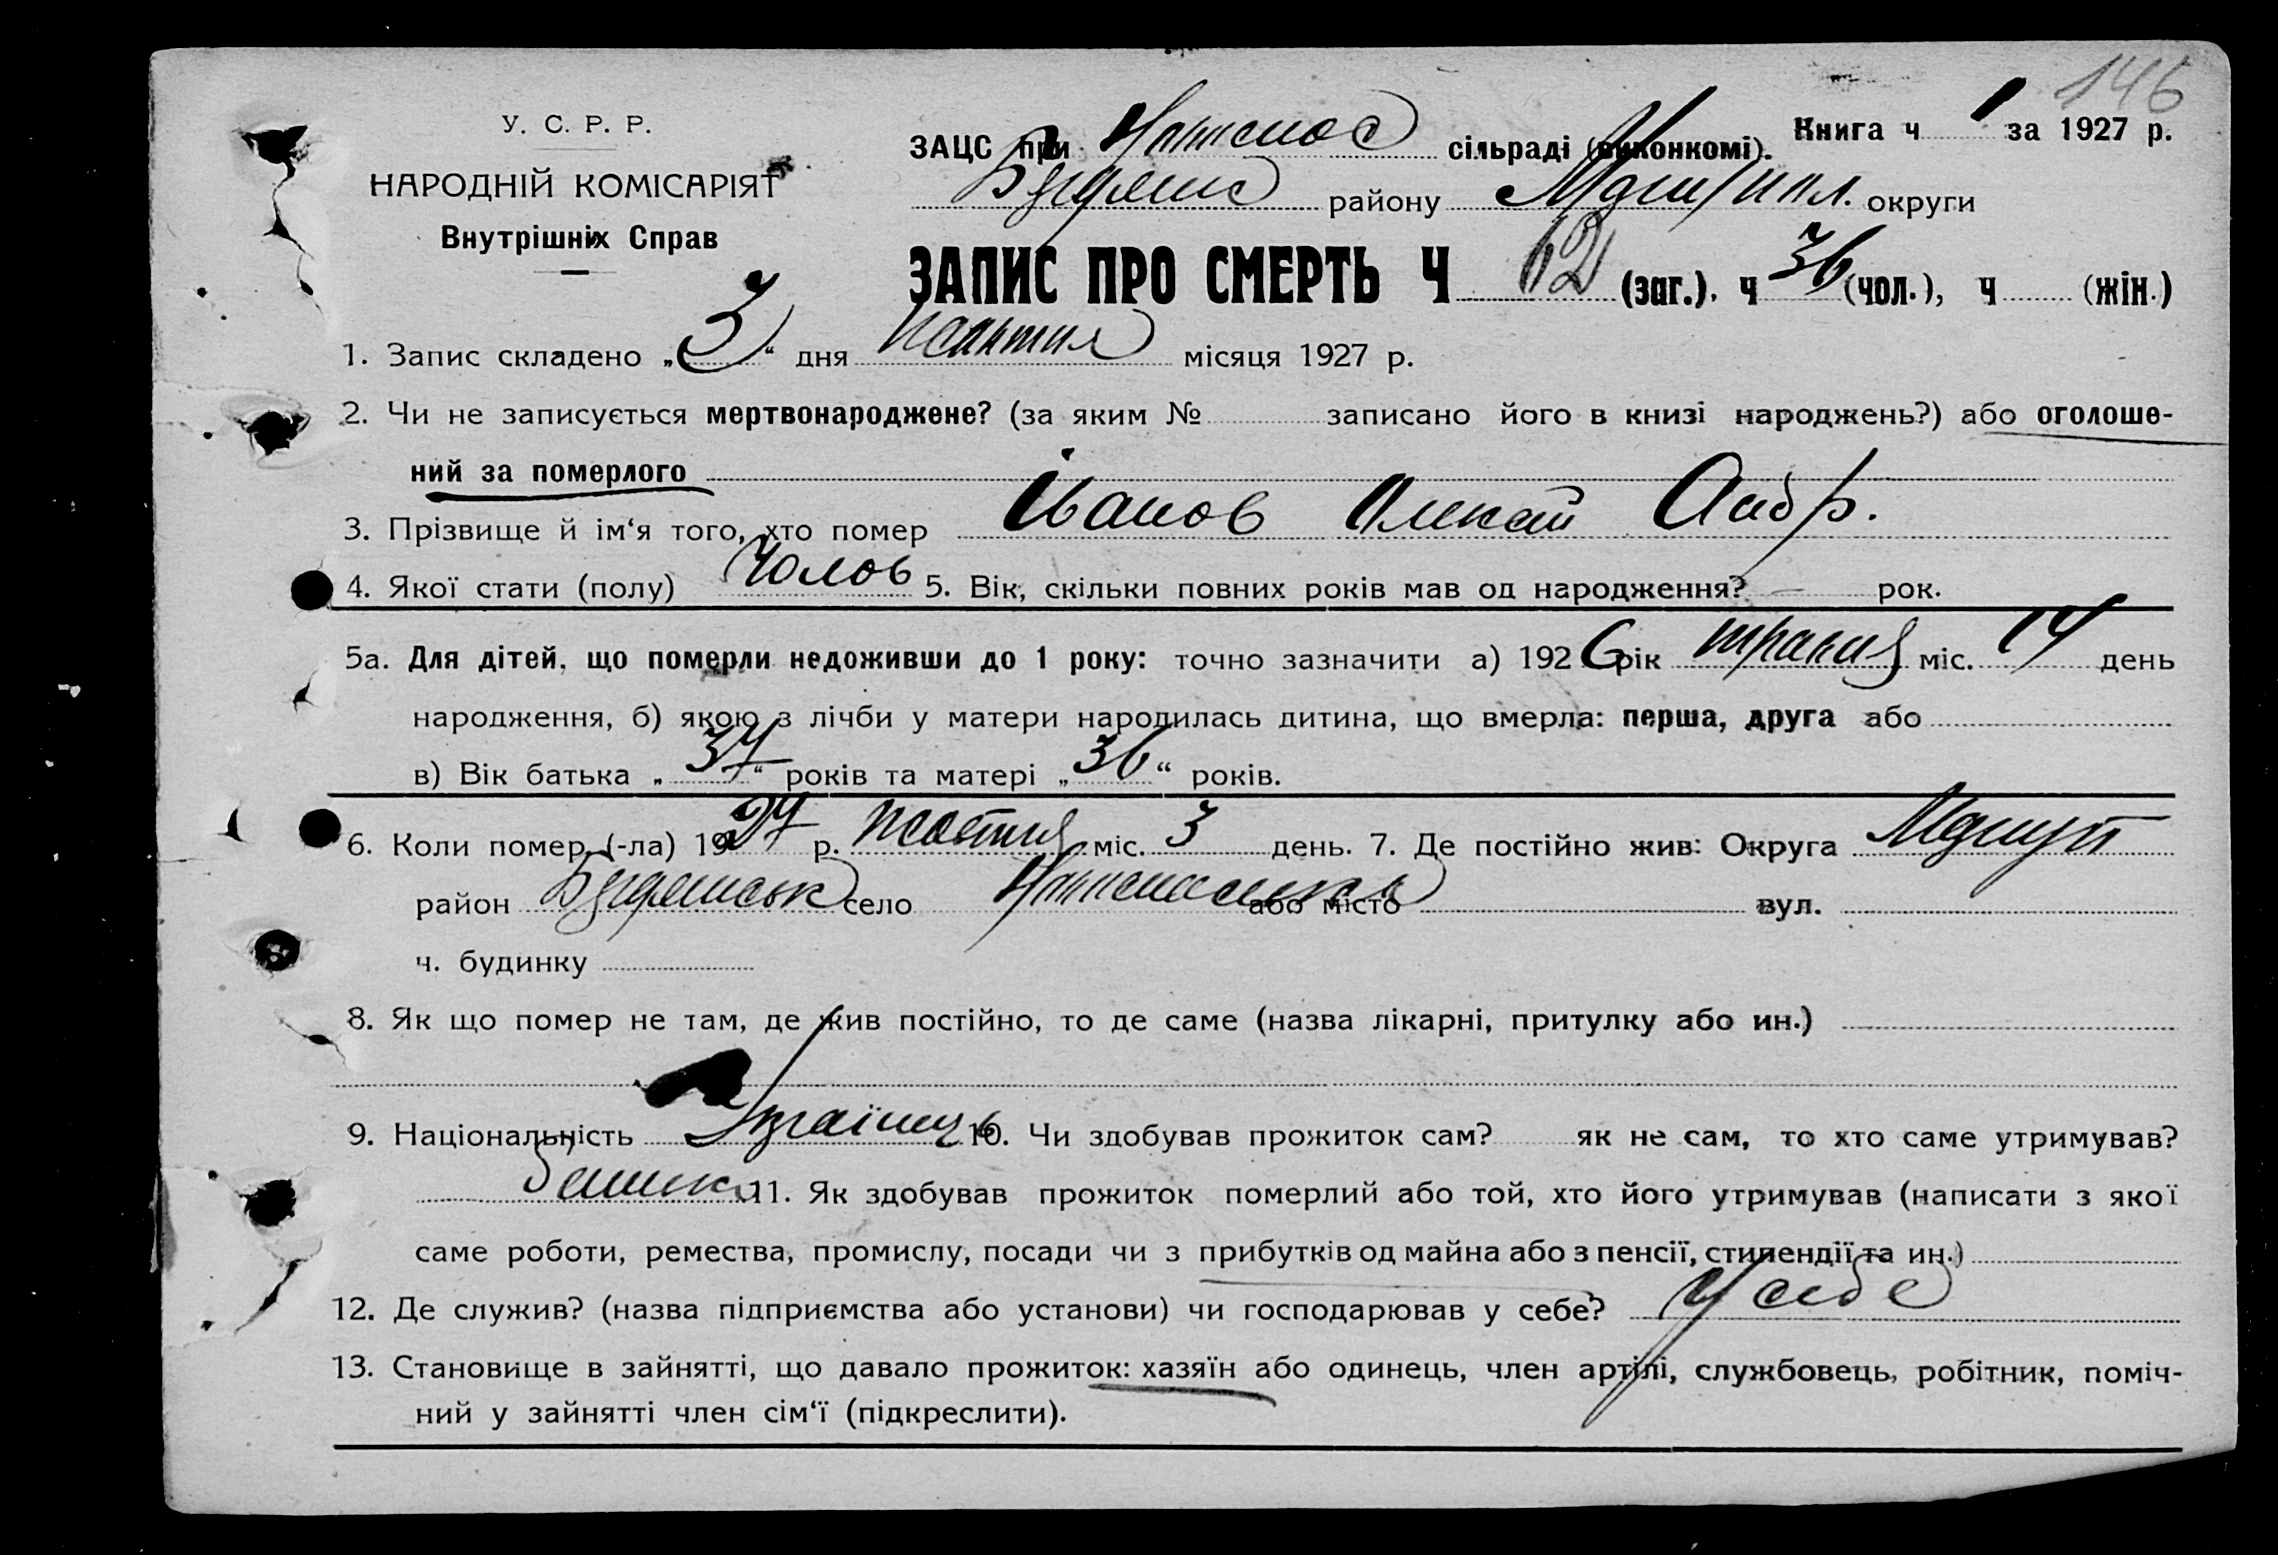 146
У. С. Р. Р.
НАРОДНІЙ КОМІСАРІЯТ
Внутрішніх Справ
ЗАЦС при сільраді (виконкомі). Книга ч 1 за 1927 р.
району округи
ЗАПИС ПРО СМЕРТЬ Ч 62 (заг.), ч 36 (чол.), ч (жін.)
1. Запис складено „3“ дня жовтня місяця 1927 р.
2. Чи не записується мертвонароджене? (за яким № записано його в книзі народжень?) або оголоше-
ний за померлого
3. Прізвище й ім‘я того, хто помер Іванов Олексій Андр.
4. Якої стати (полу) Чолов 5. Вік, скільки повних років мав од народження? — рок.
5а. Для дітей, що померли недоживши до 1 року: точно зазначити а) 1926 рік травня міс. 14 день
народження, б) якою з лічби у матери народилась дитина, що вмерла: перша, друга або
в) Вік батька „37“ років та матері „36“ років.
6. Коли помер (-ла) 1927 р. жовтня міс. 3 день. 7. Де постійно жив: Округа
район село або місто вул.
ч. будинку
8. Як що помер не там, де жив постійно, то де саме (назва лікарні, притулку або ин.)
9. Національність Українець 10. Чи здобував прожиток сам? як не сам, то хто саме утримував?
батько 11. Як здобував прожиток померлий або той, хто його утримував (написати з якої
саме роботи, ремества, промислу, посади чи з прибутків од майна або з пенсії, стипендії та ин.)
12. Де служив? (назва підприємства або установи) чи господарював у себе? У себе
13. Становище в зайнятті, що давало прожиток: хазяїн або одинець, член артілі, службовець, робітник, поміч-
ний у зайнятті член сім‘ї (підкреслити).